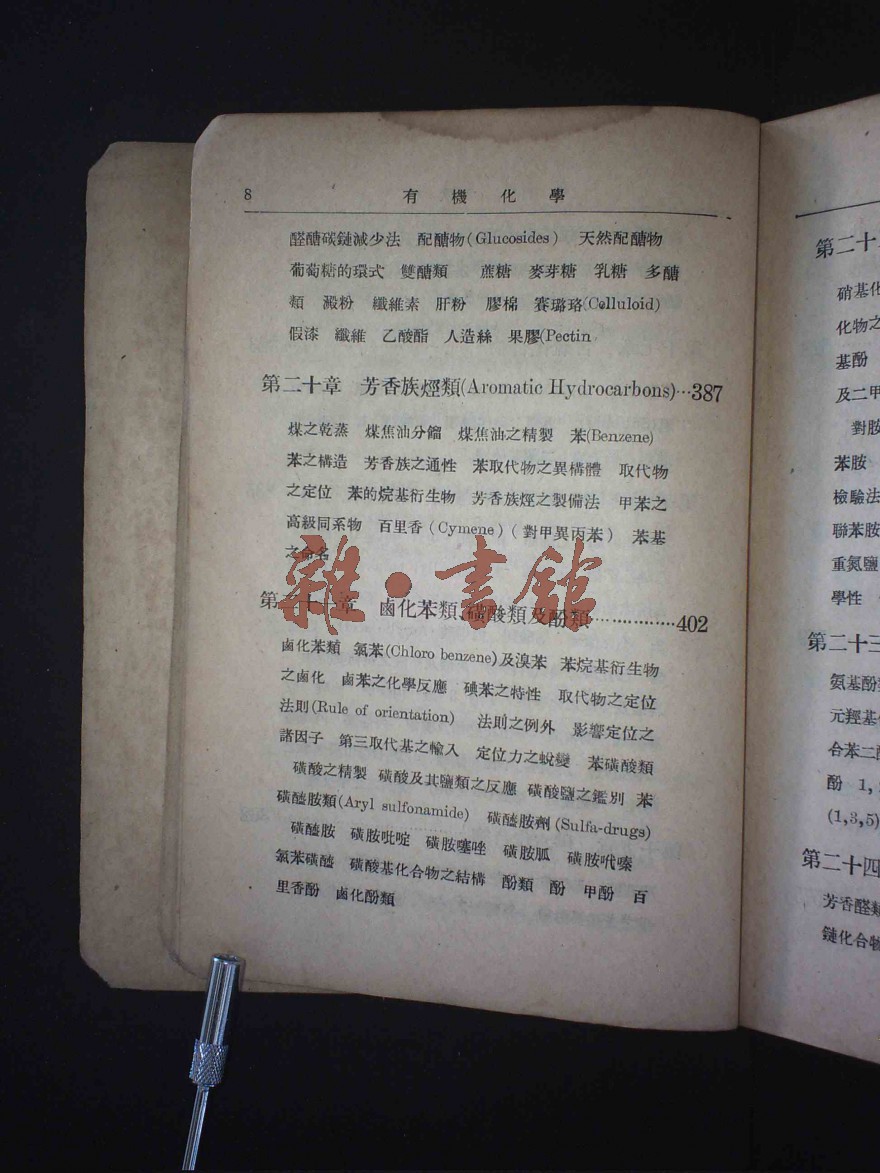 8 有機化學
醛醣碳鏈減少法 配醣物(Glucosides) 天然配醣物
葡萄糖的環式 雙醣類 蔗糖 麥芽糖 乳糖 多醣
類 澱粉 纖維素 肝粉 膠棉 賽璐珞(Celluloid)
假漆 纖維 乙酸酯 人造絲 果膠(Pectin
第二十章 芳香族烴類(Aromatic Hydrocarbons)…387
煤之乾蒸 煤焦油分餾 煤焦油之精製 苯(Benzene)
苯之構造 芳香族之通性 苯取代物之異構體 取代物
之定位 苯的烷基衍生物 芳香族烴之製備法 甲苯之
高級同系物 百里香(Cymene)(對甲異丙苯) 苯基
之命名
雜·書館
第二十一章 鹵化苯類、磺酸類及酚類……………402
鹵化苯類 氯苯(Chloro benzene)及溴苯 苯烷基衍生物
之鹵化 鹵苯之化學反應 碘苯之特性 取代物之定位
法則(Rule of orientation) 法則之例外 影響定位之
諸因子 第三取代基之輸入 定位力之蛻變 苯磺酸類
磺酸之精製 磺酸及其鹽類之反應 磺酸鹽之鑑別 苯
磺醯胺類(Aryl sulfonamide) 磺醯胺劑(Sulfa-drugs)
磺醯胺 磺胺吡啶 磺胺噻唑 磺胺胍 磺胺吠嗪
氯苯磺醯 磺酸基化合物之結構 酚類 酚 甲酚 百
里香酚 鹵化酚類
第二十
硝基化
化物之
基酚
及二甲
對胺
苯胺
檢驗法
聯苯胺
重氮鹽
學性
第二十三
氨基酚
元羥基
合苯二
酚 1,
(1,3,5)
第二十四
芳香醛類
鏈化合物